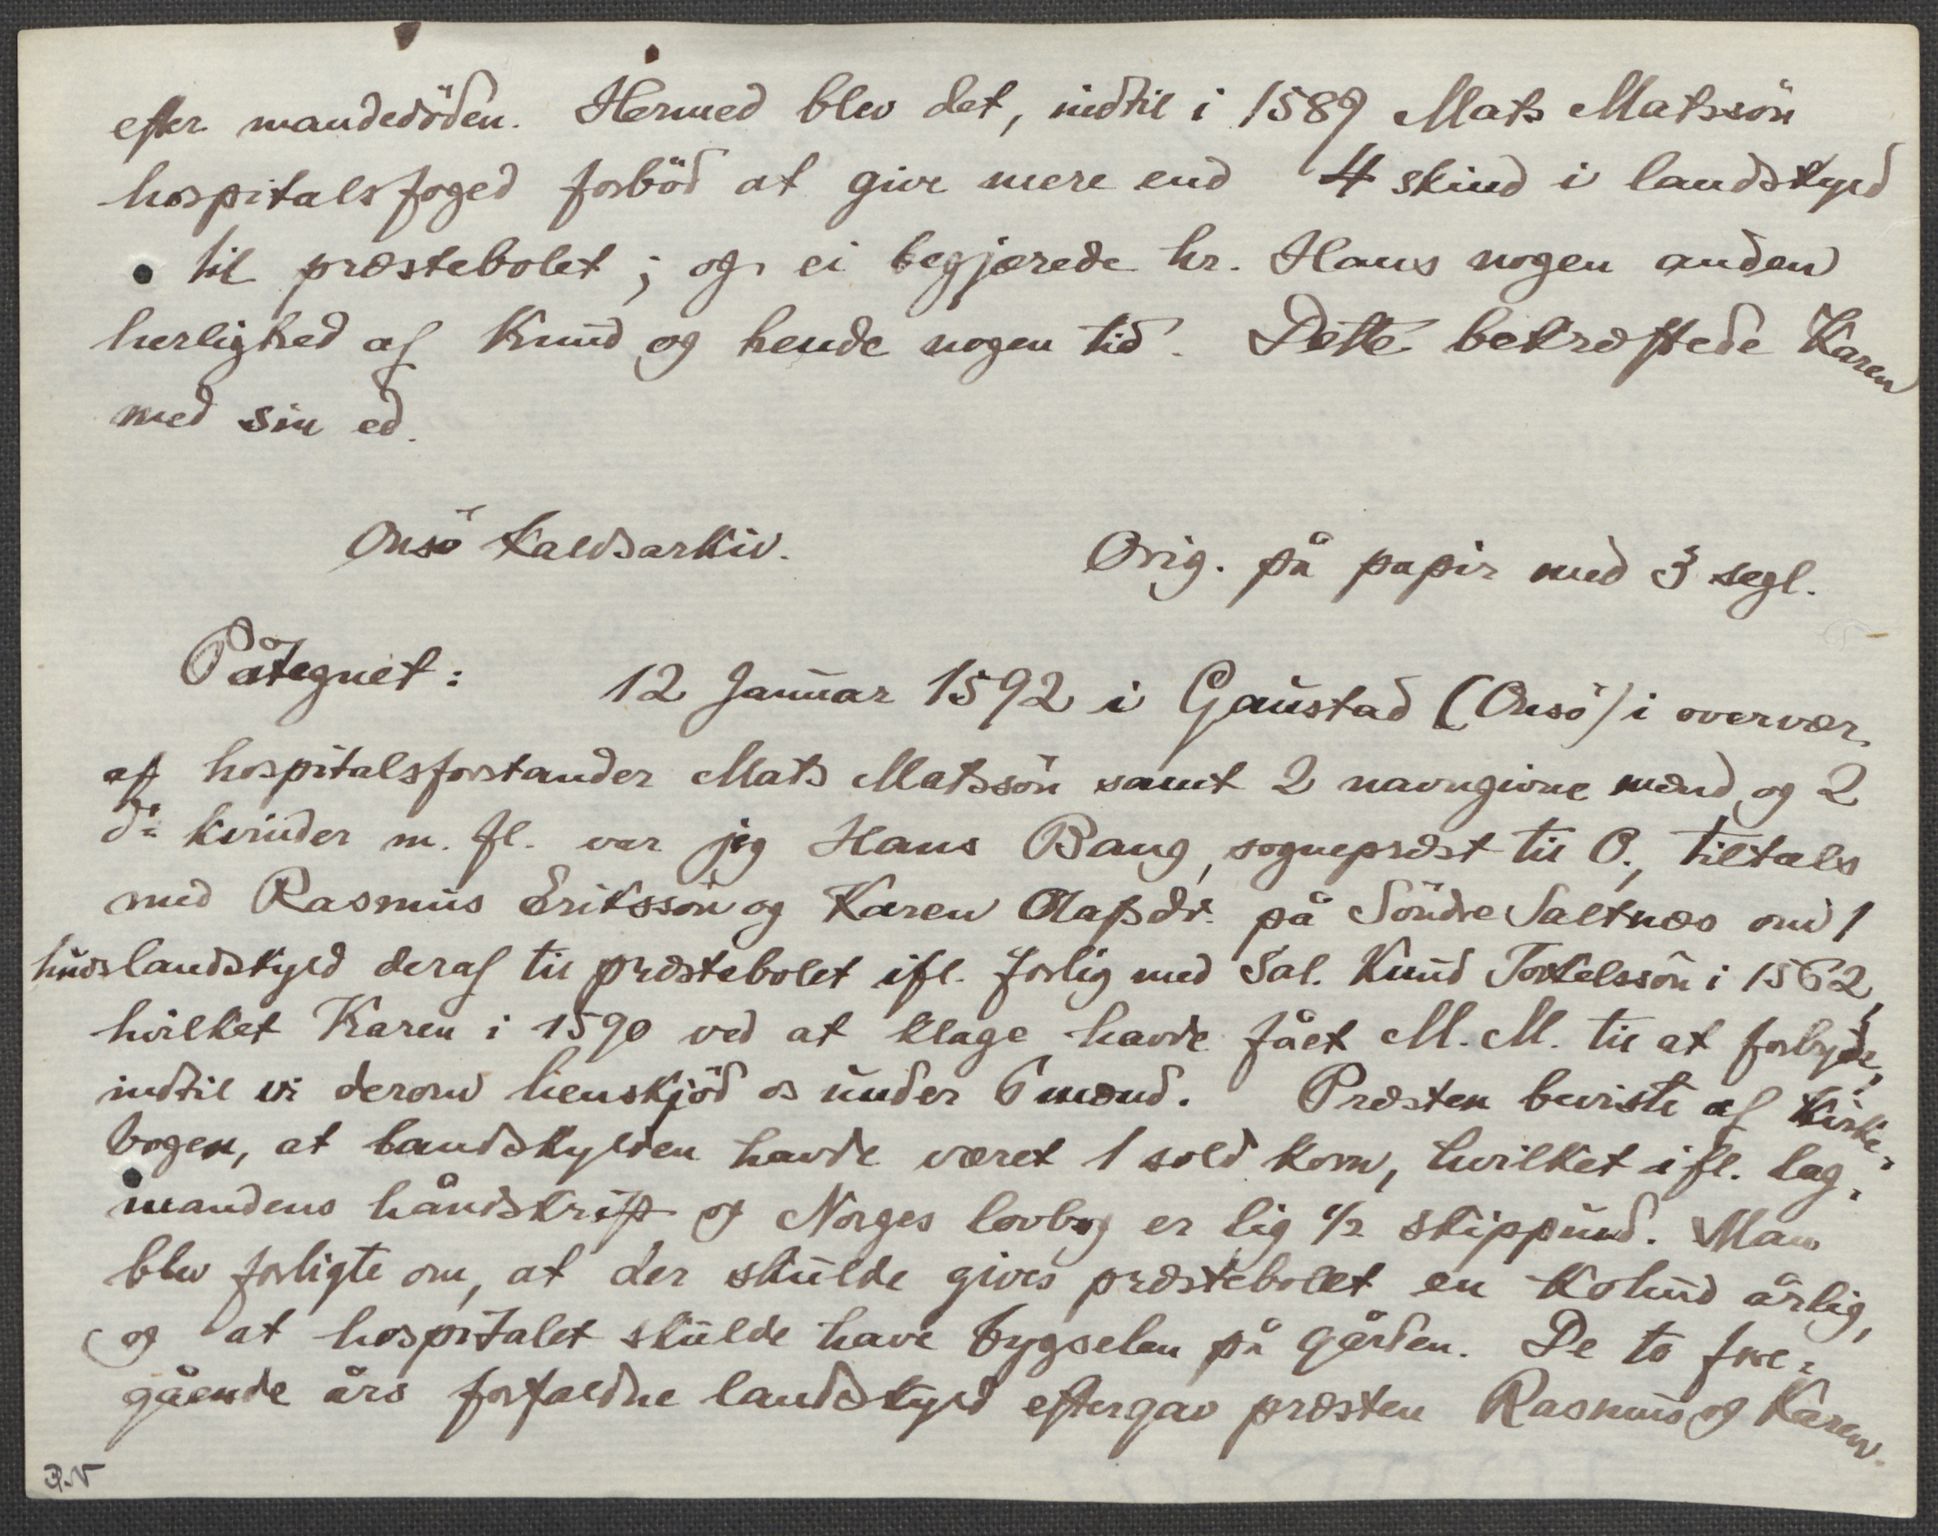 efter mandedöden. Hermed blev det, indtil i 1589 Mats Matssön
hospitalsfoged forböd at give mere end 4 skind i landskyld
til præstebolet; og ei begjærede hr. Hans nogen anden
herlighed af Knud og hende nogen tid. Dette bekræftede Karen
med sin ed.
Onsö Kaldsarkiv.
Orig. på papir med 3 segl.
Påtegnet: 12 Januar 1592 i Gaustad (Onsö) i overvær
af hospitalsforstander Mats Matssön samt 2 navngivne mænd og 2
do kvinder m. fl. var jeg Hans Bang, sogneprest til O., tiltals
med Rasmus Eriksson og Karen Olafsdr. på Söndre Saltnæs om 1
huds landskyld deraf til præstebolet ifl. forlig med Sal. Knud Torkelssön i 1562,
hvilket Karen i 1590 ved at klage havde fået M. M. til at forbyde,
indtil vi derom henskjöd os under 6 mænd. Præsten beviste af Kirke-
bogen, at landskylden havde været 1 sold korn, hvilket ifl. lag-
mandens håndskrift og Norges lovbog er lig 1/2 skippund. Man
blev forligte om, at der skulde gives præstebolet en Kohud årlig,
og at hospitalet skulde have bygselen på gården. De to fore-
gående års forfaldne landskyld eftergav præsten Rasmus og Karen.
P.N